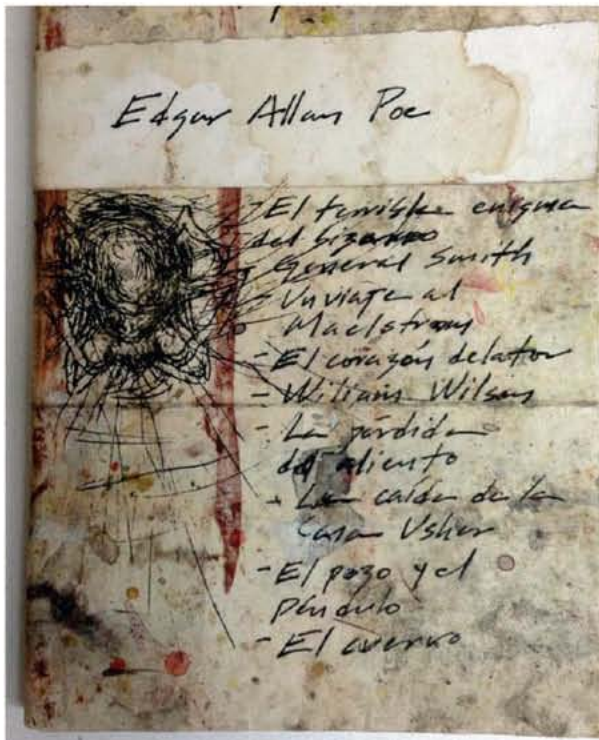 Edgar Allan Poe
El terrible enigma
del bizarro
General Smith
- Un viaje al
Maelstrom
- El corazón delator
- William Wilson
- La pérdida
del aliento
- La caída de la
Casa Usher
- El pozo y el
péndulo
- El cuervo